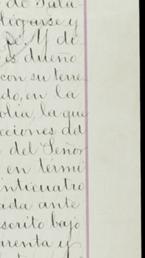 de Sala
ligarse y
pe. Y di
es dueño
con su terre
do, en la
blia, la que
cciones del
del Señor
en térmi
inticuatro
ada ante
scrito bajo
renta y